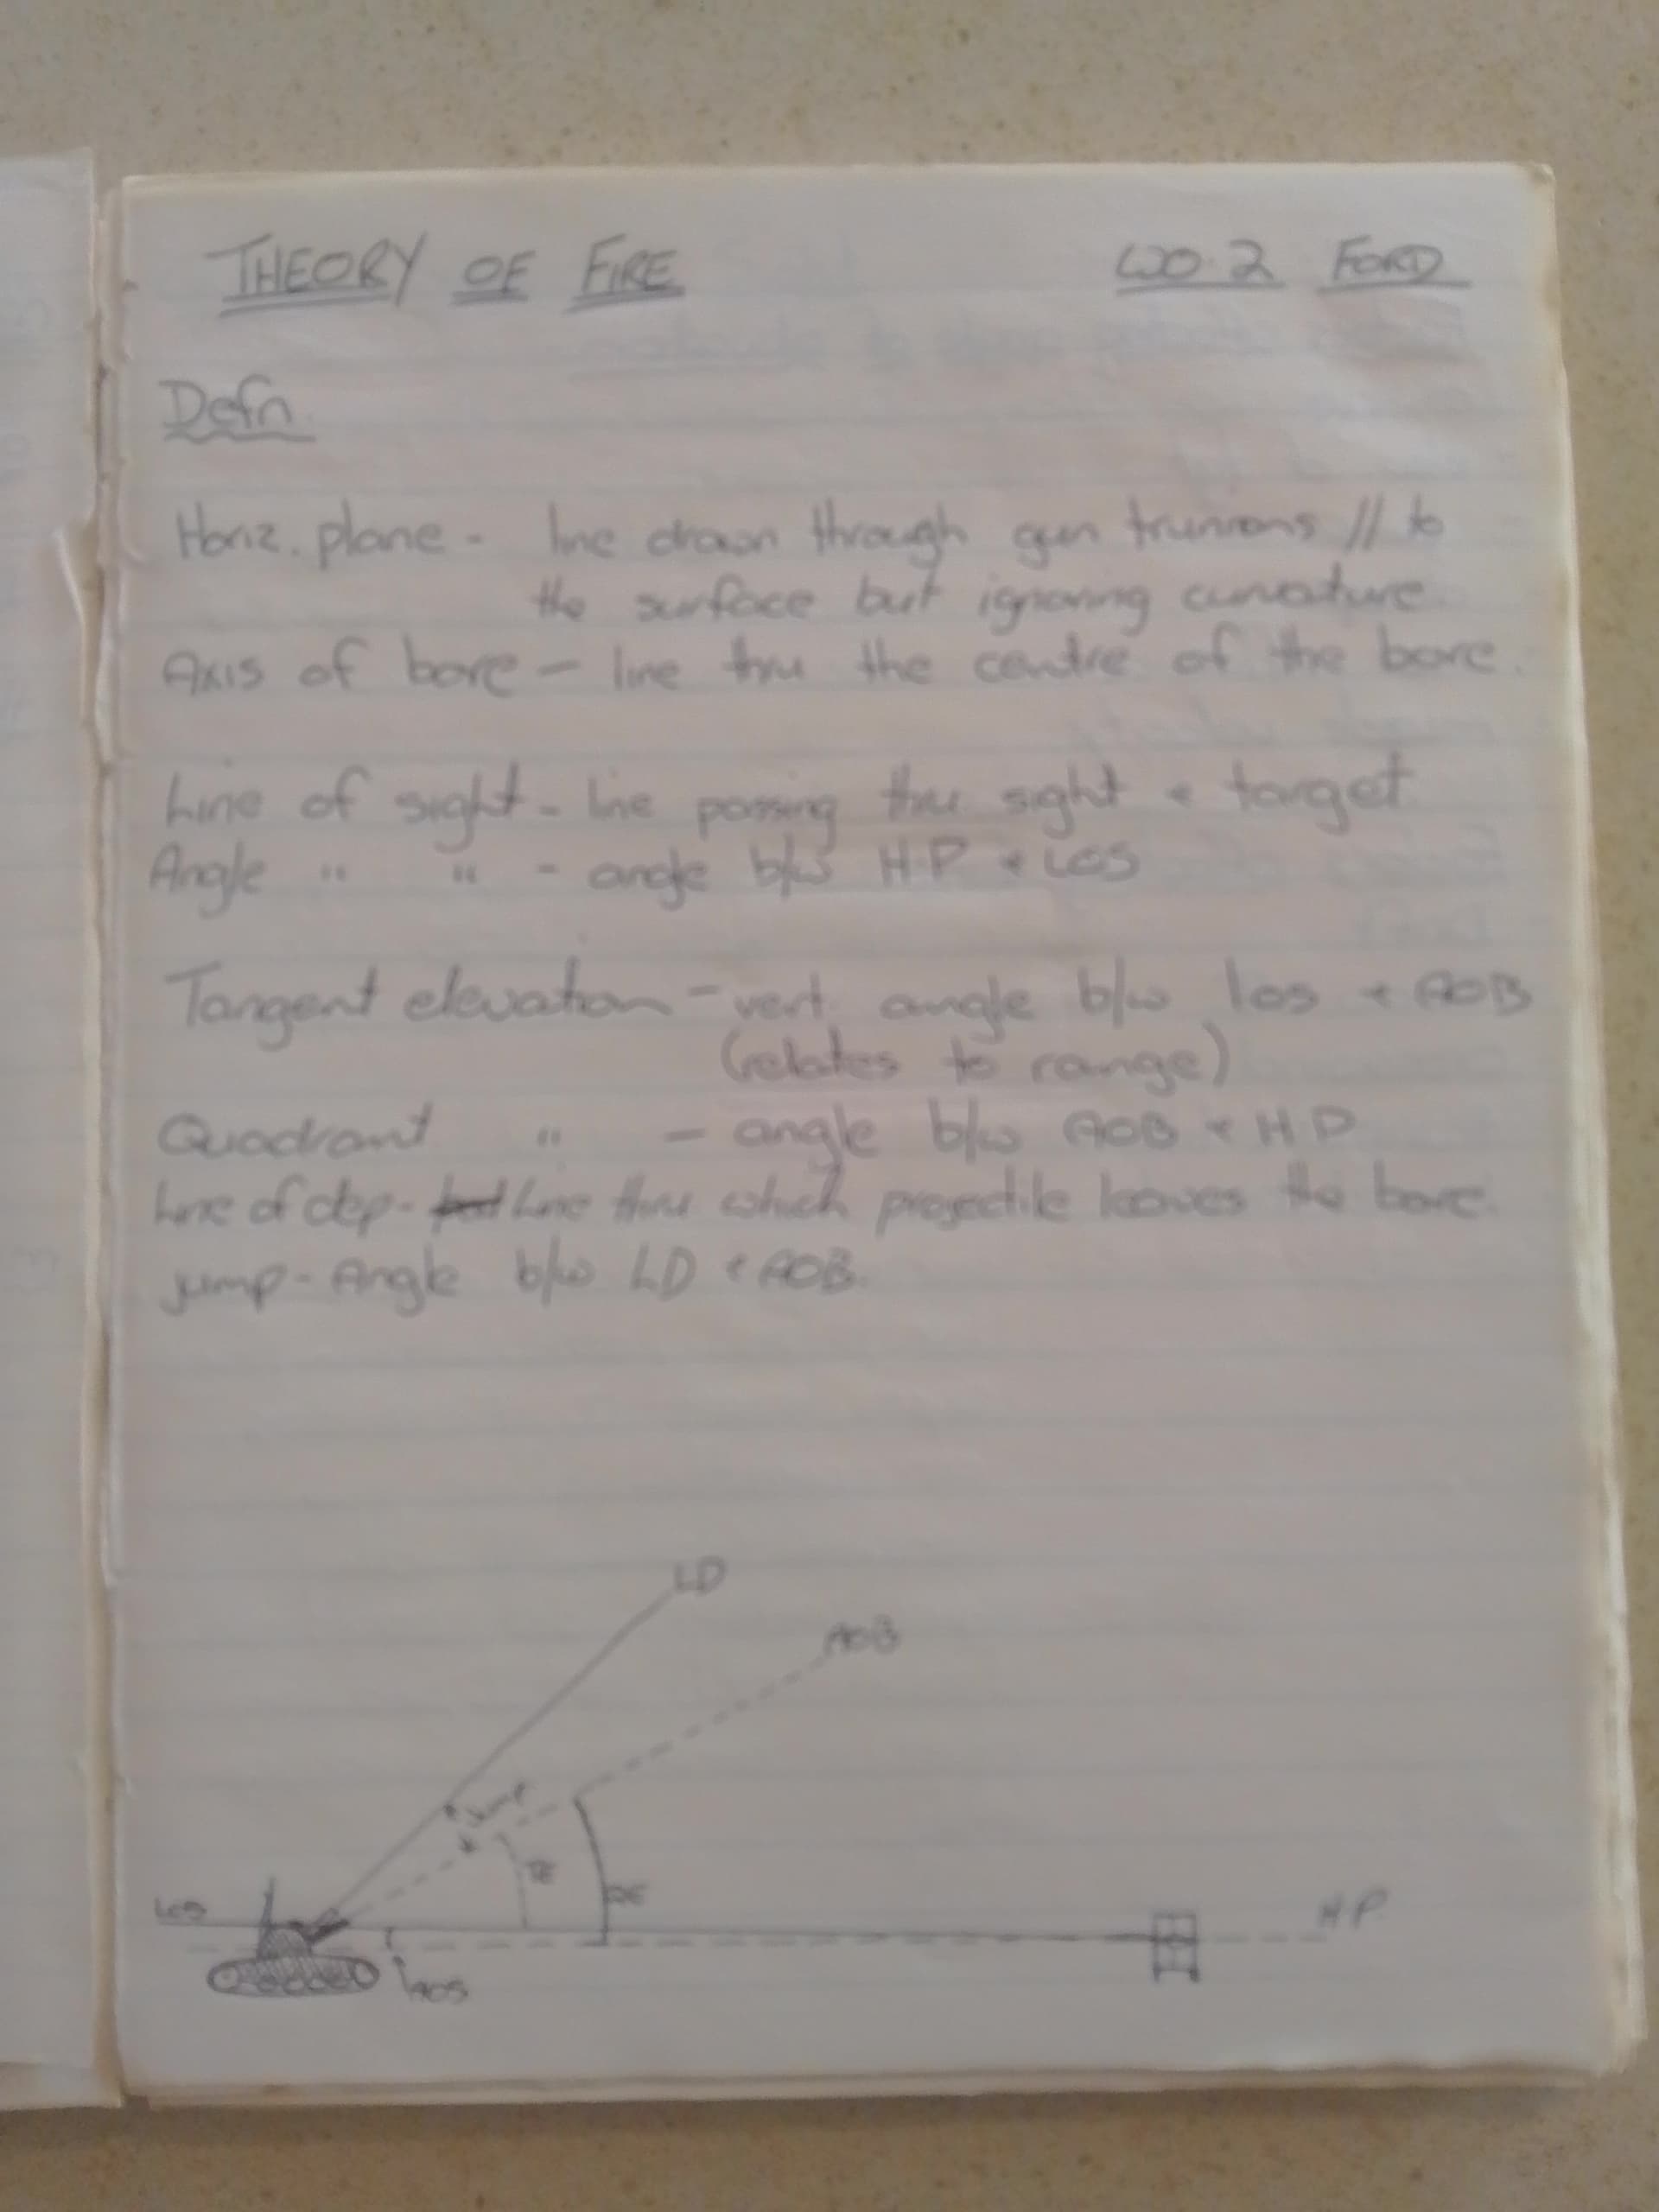 THEORY OF FIRE WO.2 FORD
Defn.
Horiz. plane - line drawn through gun trunions // to
the surface but ignoring curvature.
Axis of bore - line thru the centre of the bore.
Line of sight - line passing thru sight + target.
Angle " " - angle b/w H.P + LOS
Tangent elevation - vert. angle b/w los + AOB
(relates to range)
Quadrant " - angle b/w AOB + H P
Line of dep - Line thru which projectile leaves the bore.
jump - Angle b/w LD + AOB.
LD
AOB
Jump
TE
QE
LOS
H P
AOS